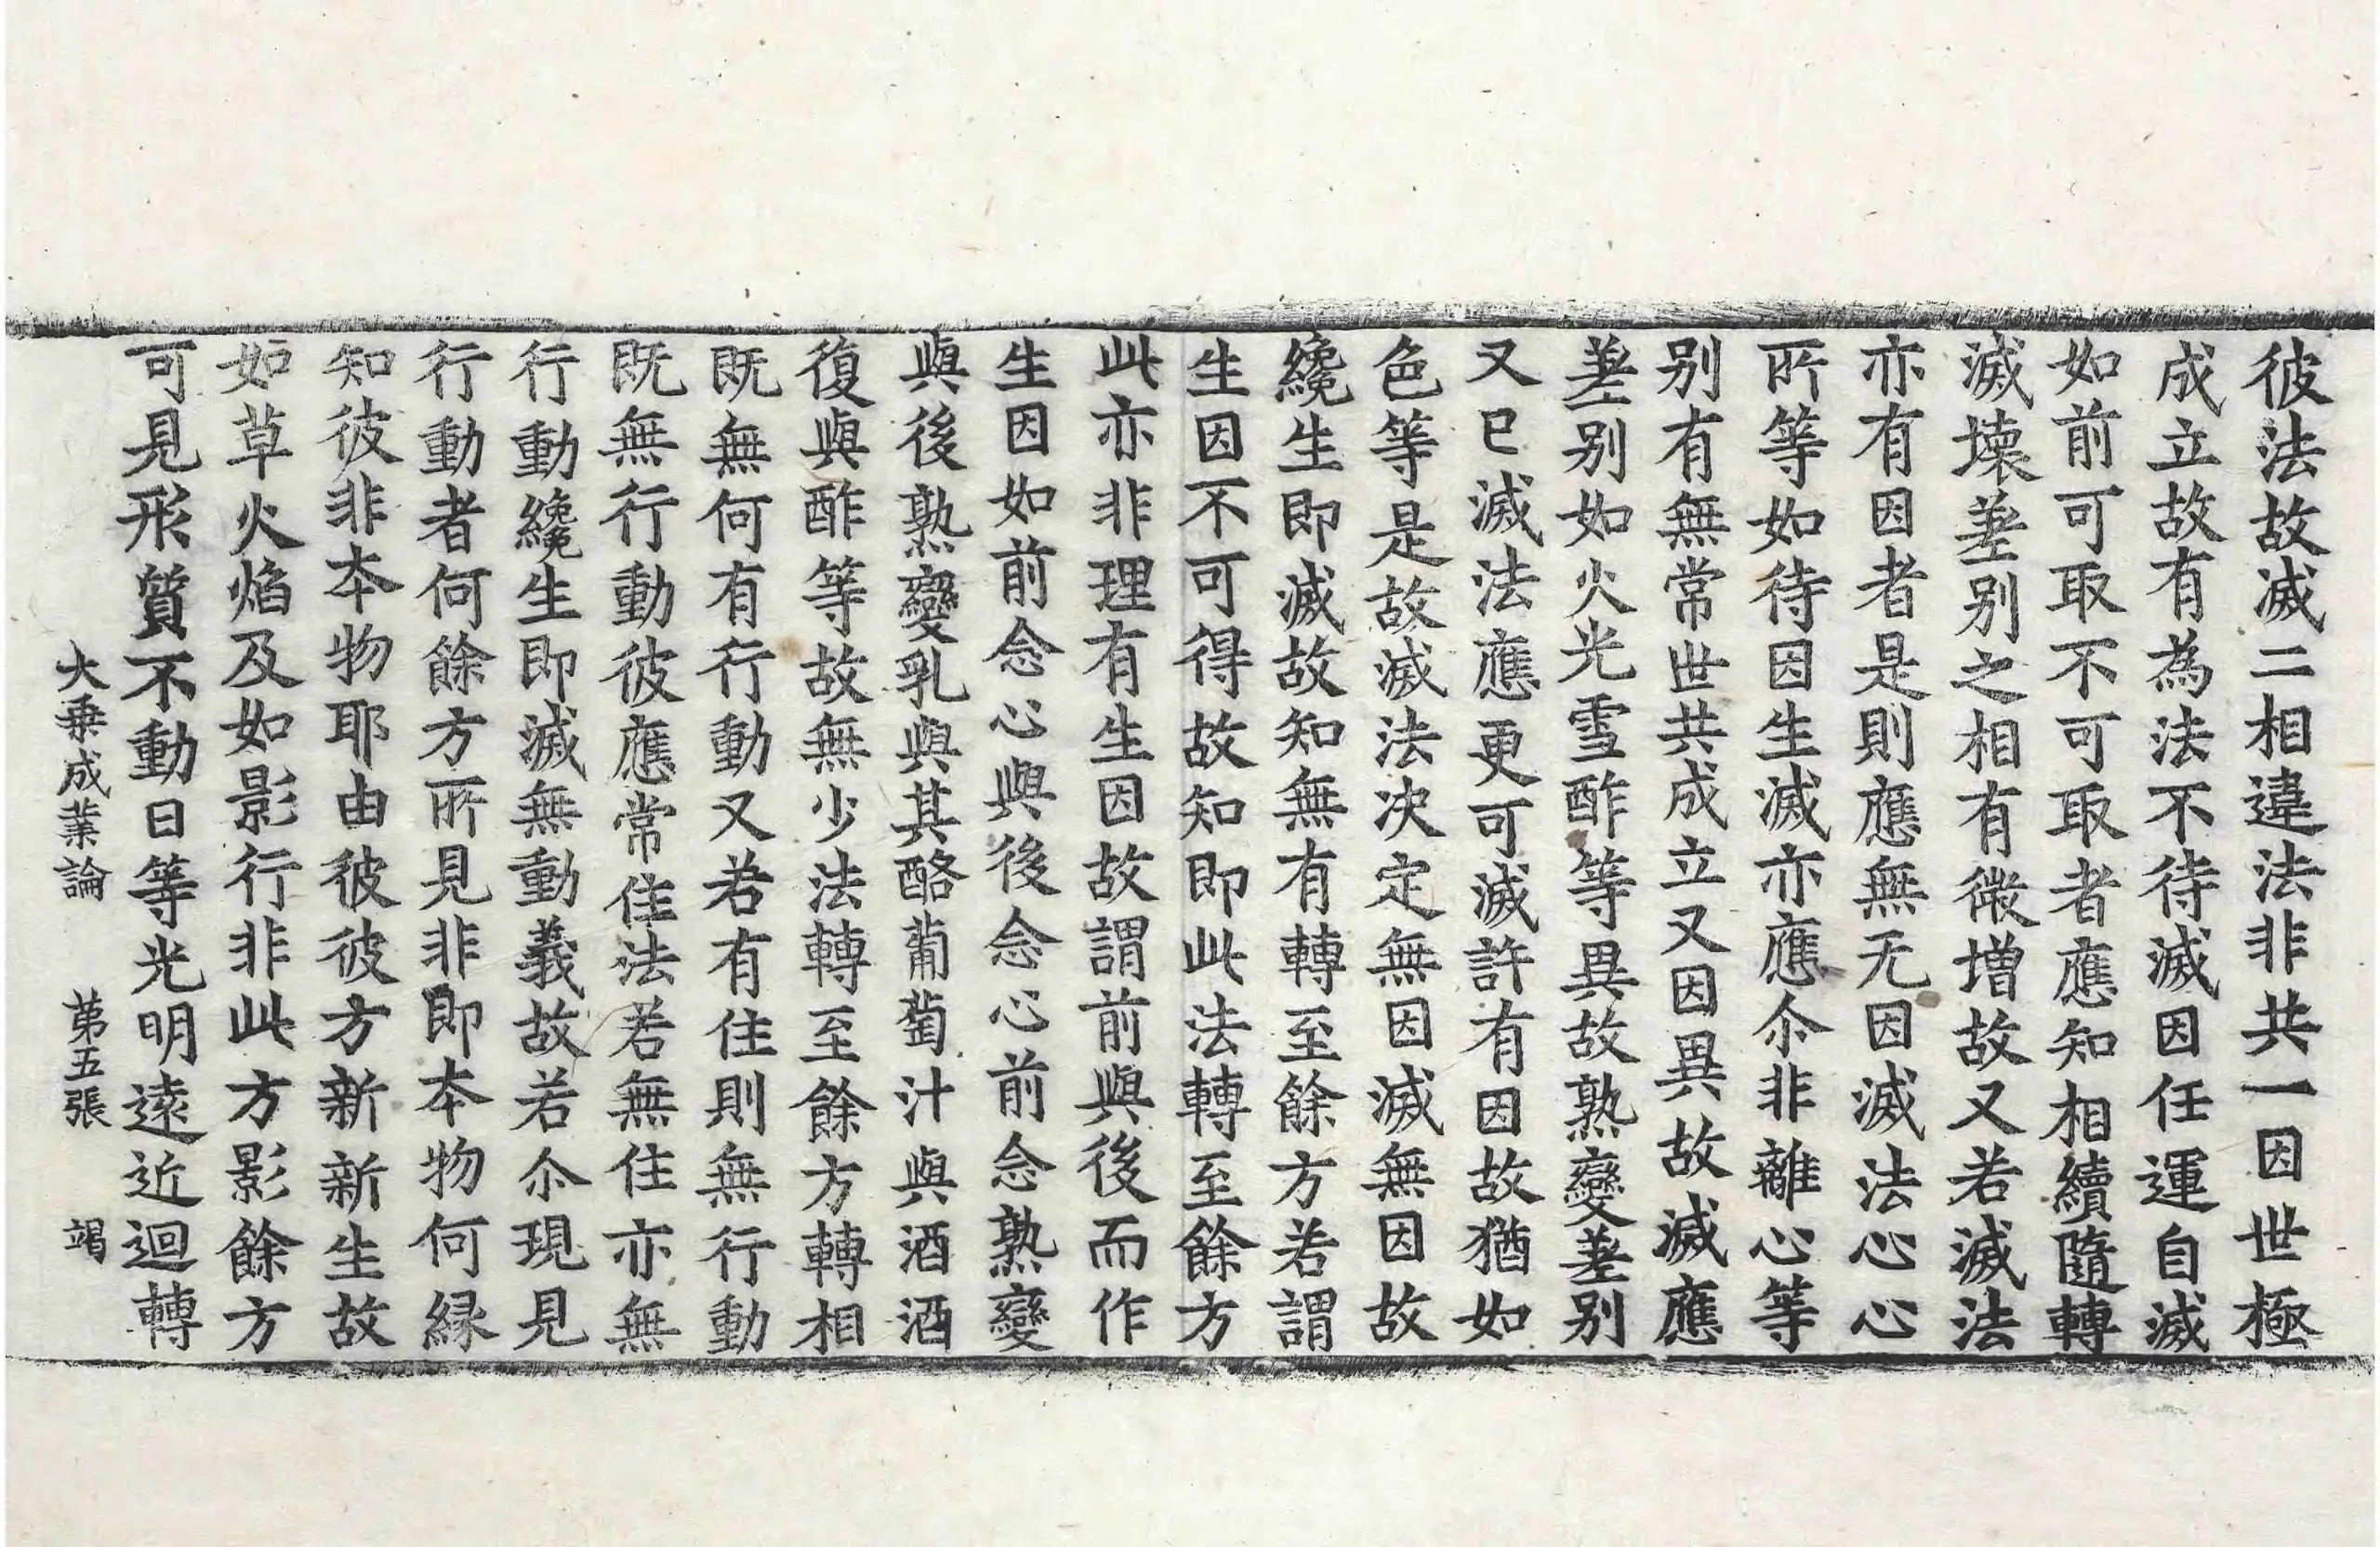 彼法故滅二相違法非共一因世極
成立故有為法不待滅因任運自滅
如前可取不可取者應知相續隨轉
滅壞差别之相有微增故又若滅法
亦有因者是則應無无因滅法心心
所等如待因生滅亦應尒非離心等
别有無常世共成立又因異故滅應
差别如火光雪酢等異故熟變差别
又已滅法應更可滅許有因故猶如
色等是故滅法决定無因滅無因故
纔生即滅故知無有轉至餘方若謂
生因不可得故知即此法轉至餘方
此亦非理有生因故謂前與後而作
生因如前念心與後念心前念熟變
與後熟變乳與其酪葡萄汁與酒酒
復與酢等故無少法轉至餘方轉相
既無何有行動又若有住則無行動
既無行動彼應常住法若無住亦無
行動纔生即滅無動義故若尒現見
行動者何餘方所見非即本物何縁
知彼非本物耶由彼彼方新新生故
如草火焰及如影行非此方影餘方
可見形質不動日等光明遠近迴轉
大乗成業論 苐五張 竭